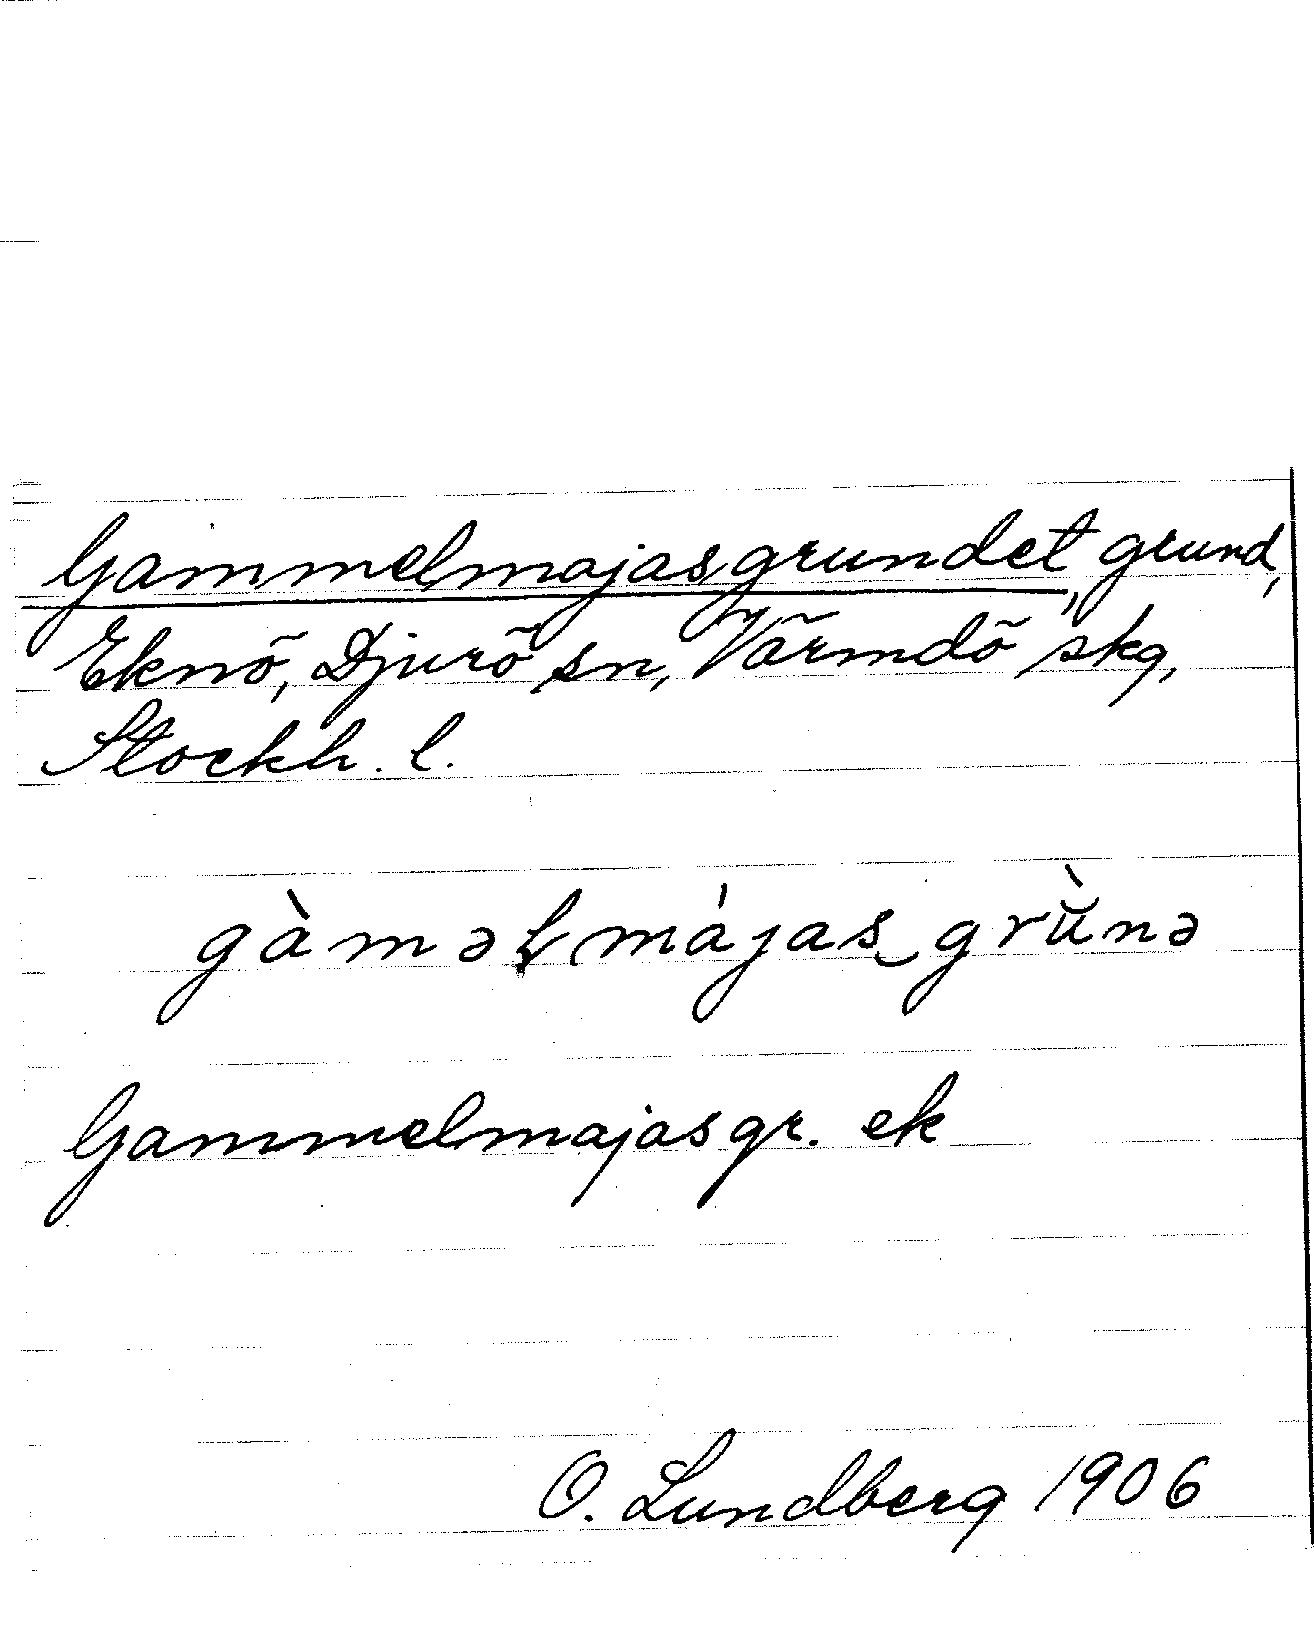 Gammelmajasgrundet, grund,
Eknö, Djurö sn, Värmdö skg,
Stockh. l.
gàməɫmájas‿grŭ̀nə
Gammelmajasgr. ek
O. Lundberg 1906